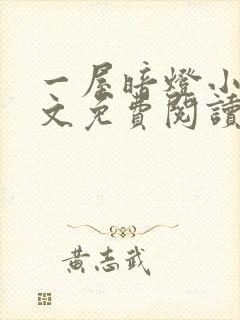 一屋暗燈小
文免費閱讀
黃志武